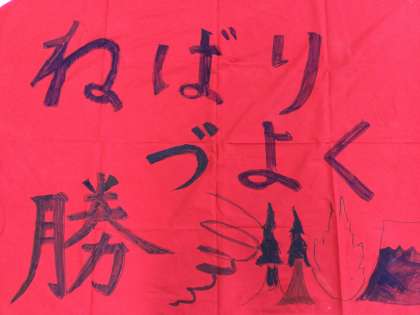 ねばり
づよく
勝